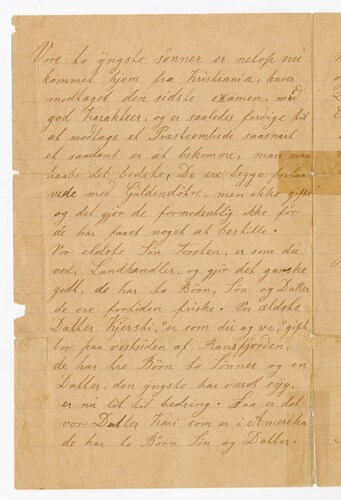 Vore to yngste sønner er netop nu
kommet hjem fra Kristiania, haver
modtaget den sidste examen, med
god Karakteer, og er saaledes færdige til
at modtage et Præsteembede saasnart
et saadant er at bekomme, man maa
haabe det bedste, De ere begge forlov
vede med Guldendötre, men ikke gifte
og det gjør de formodentlig ikke før
de har faaet noget at bestille.
Vor eldste Søn Torsten, er som du
ved, Landhandler, og gjør det ganske
godt, de har to Børn, Søn og Datter
de ere fortiden friske. Vor ældste
Datter Kjersti, er som du og ve, gift
bor paa vestsiden af Ransfjorden,
de har tre Børn to Sønner og en
Datter, den yngste har været syg,
er nu lit til bedring. Saa er det
vor Datter Kari som er i Amerika
de har to Børn Søn og Datter.